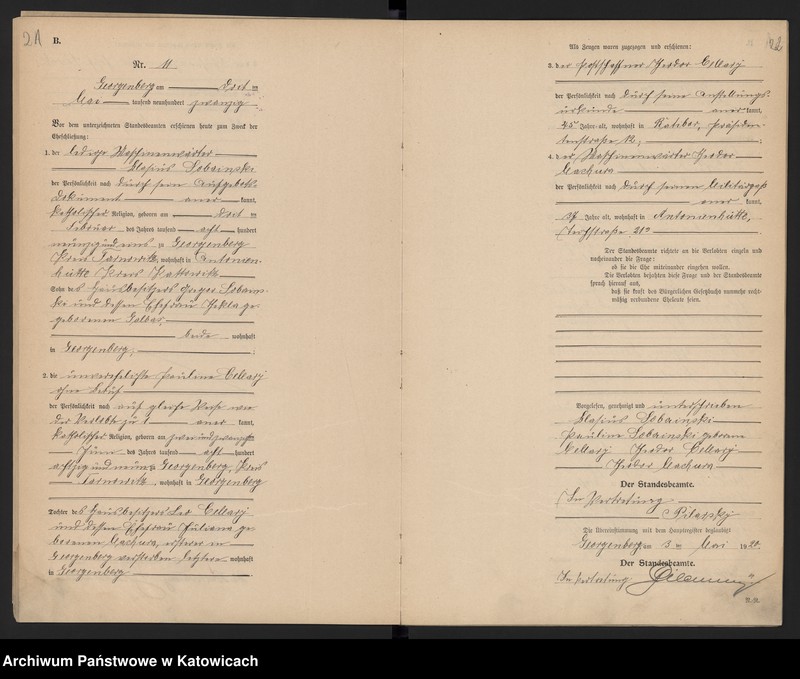 2A
B.
Nr. 11
Georgenberg am Drei ten
Mai tausend neunhundert zwanzig
Vor dem unterzeichneten Standesbeamten erschienen heute zum Zweck der
Eheschließung:
1. der ledige Maschinenwärter
Blasius Sobainski
der Persönlichkeit nach durch sein Aufgebots-
Dokument aner kannt,
katholischer Religion, geboren am Drei ten
Februar des Jahres tausend acht hundert
neunzig und eins zu Georgenberg
Kreis Tarnowitz, wohnhaft in Antonien-
hütte Kreis Kattowitz
Sohn des Hausbesitzers Sobains-
ki und dessen Ehefrau Thekla ge-
geborenen
beide wohnhaft
in Georgenberg;
2. die unverehelichte Pauline
ohne Beruf
der Persönlichkeit nach auf gleiche Weise wie
der Verlobte zu 1 aner kannt,
katholischer Religion, geboren am zweiundzwanzigsten
Juni des Jahres tausend acht hundert
achtzig und neun zu Georgenberg, Kreis
Tarnowitz, wohnhaft in Georgenberg
Tochter des Hausbesitzers
und dessen Ehefrau Juliana ge-
borenen Machura, ersterer in
Georgenberg verstorben letztere wohnhaft
in Georgenberg
22
Als Zeugen waren zugezogen und erschienen:
3. der Postschaffner Theodor
der Persönlichkeit nach durch seine Anstellungs-
urkunde aner kannt,
45 Jahre alt, wohnhaft in Ratibor, Präsiden-
tenstraße 12;
4. der Maschinenwärter Theodor
Machura
der Persönlichkeit nach durch seinen Militärpaß
aner kannt,
37 Jahre alt, wohnhaft in Antonienhütte,
Der Standesbeamte richtete an die Verlobten einzeln und
nacheinander die Frage:
ob sie die Ehe miteinander eingehen wollen.
Die Verlobten bejahten diese Frage und der Standesbeamte
sprach hierauf aus,
daß sie kraft des Bürgerlichen Gesetzbuchs nunmehr recht-
mäßig verbundene Eheleute seien.
Vorgelesen, genehmigt und unterschrieben
Blasius Sobainski
Pauline Sobainski geborene
Theodor
Theodor Machura
Der Standesbeamte.
In Vertretung
Die Übereinstimmung mit dem Hauptregister beglaubigt
Georgenberg, am 3 ten Mai 1920.
Der Standesbeamte.
In Vertretung:
Archiwum Państwowe w Katowicach